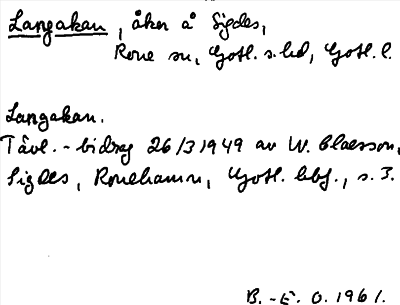 Langakan, åker å Sigdes,
Rone sn, Gotl. s. hd, Gotl. l.
Langakan.
Tävl.-bidrag 26/3 1949 av W. Claesson,
Sigdes, Ronehamn, Gotl. , s. 3.
B.-E. O. 1961.